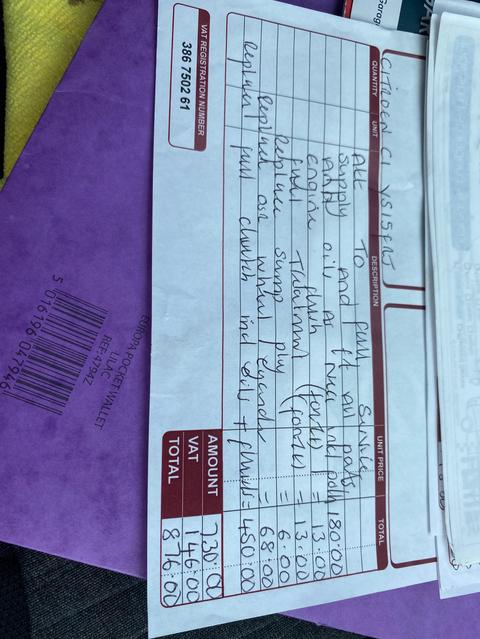 CITROEN C1
QUANTITY UNIT DESCRIPTION UNIT PRICE TOTAL
ALL TO full Service
Supply and fit all parts
and oils as 180.00
engine flush = 13.00
fuel Treatment = 13.00
Replace sump plug = 6.00
Replaced osr wheel = 68.00
Replaced full clutch inc oils + fluids = 450.00
VAT REGISTRATION NUMBER
386 7502 61
AMOUNT 730.00
VAT 146.00
TOTAL 876.00
EUROPA POCKET WALLET
LILAC
REF:4794Z
5 016196 047946
Parag